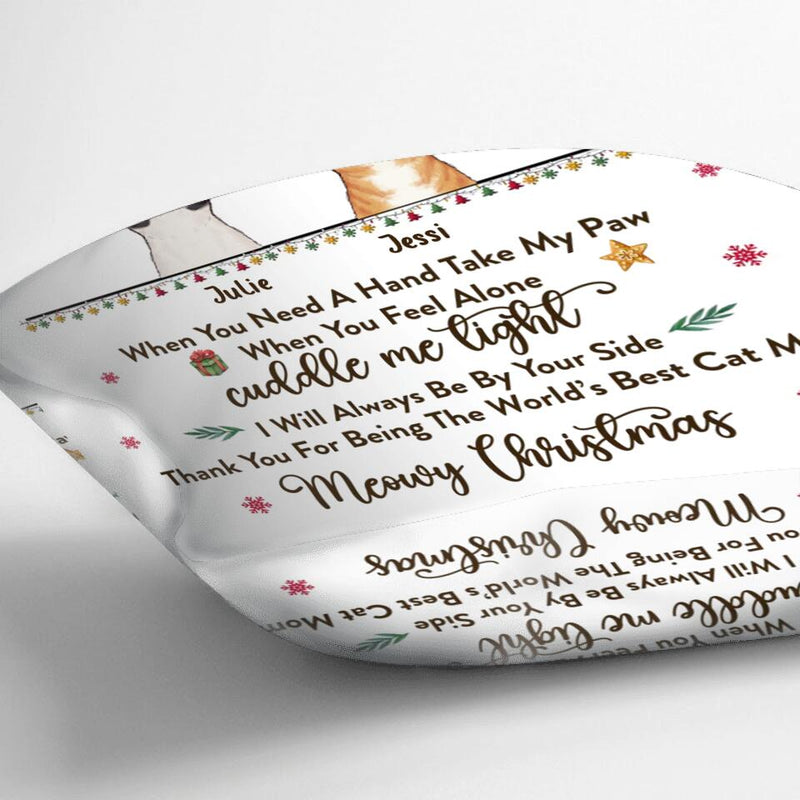 Julie
Jessi
When You Need A Hand Take My Paw
When You Feel Alone
cuddle me tight
I Will Always Be By Your Side
Thank You For Being The World's Best Cat M
Meowy Christmas
Meowy Christmas
You For Being The World's Best Cat Mom
I Will Always Be By Your Side
cuddle me tight
When You Feel